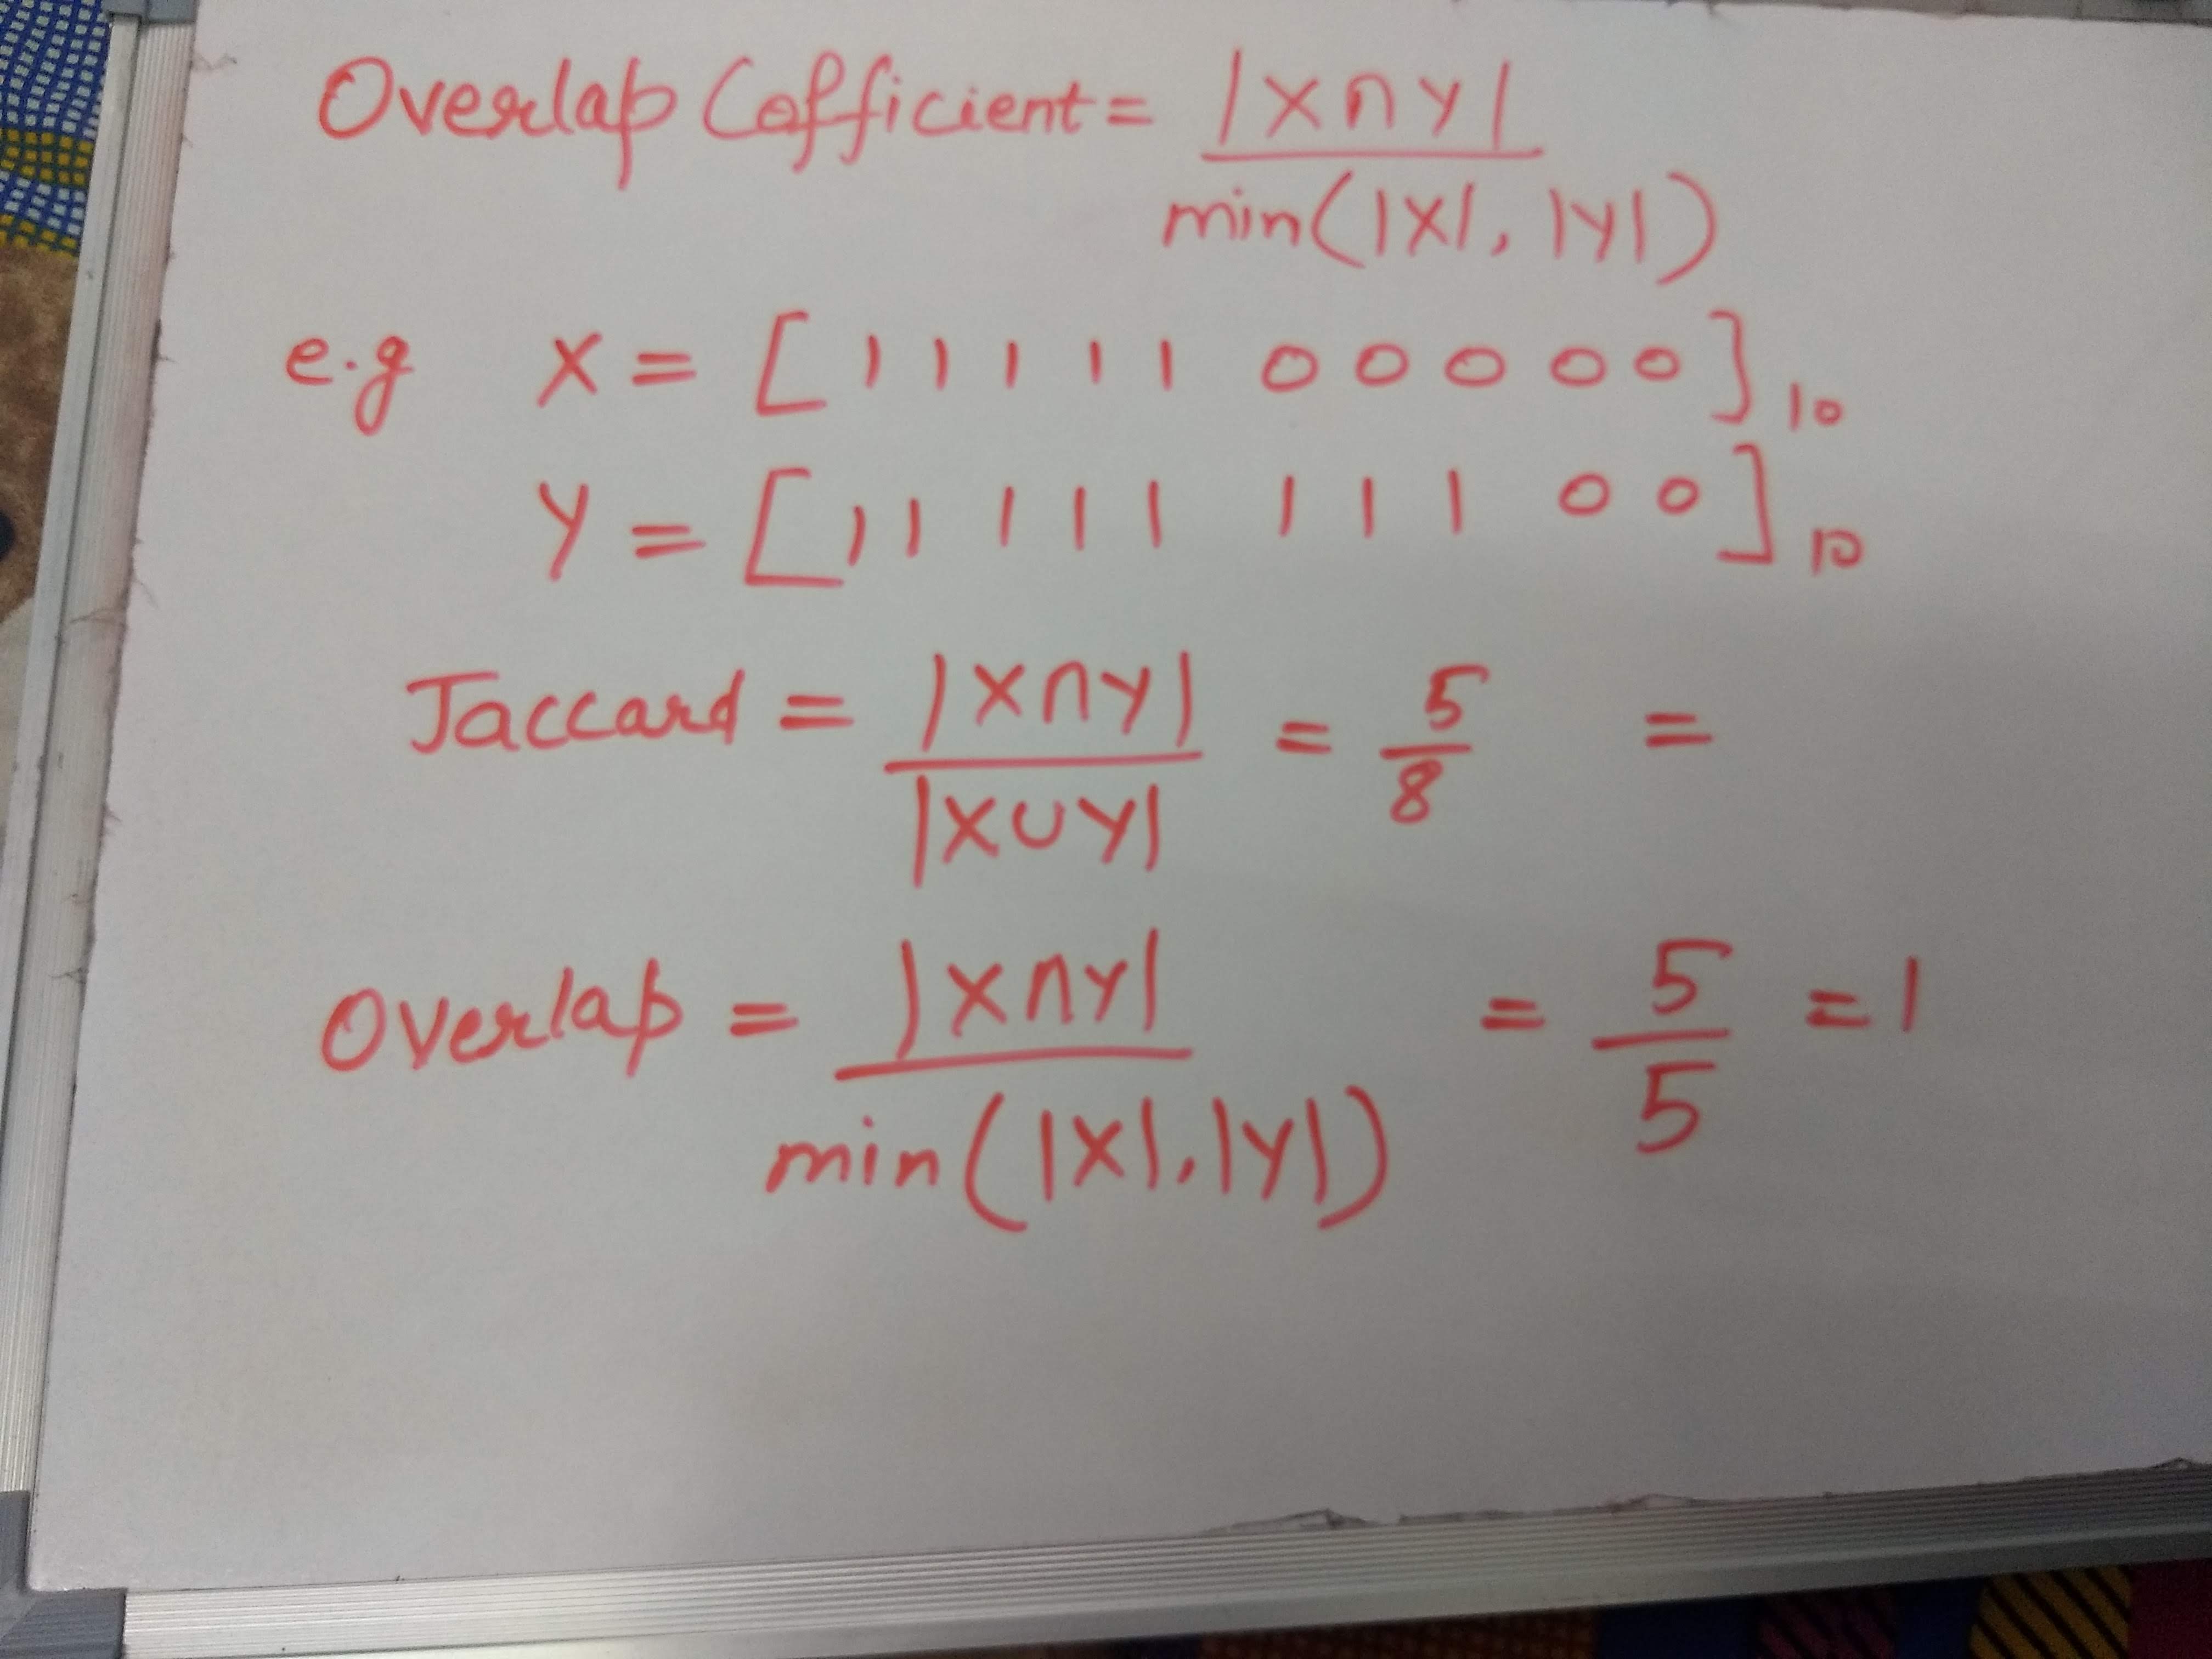 Overlap Cofficient = |X∩Y| / min(|X|, |Y|)
e.g X = [ 1 1 1 1 1 0 0 0 0 0 ]10
Y = [ 1 1 1 1 1 1 1 1 0 0 ]10
Jaccard = |X∩Y| / |X∪Y| = 5/8 =
Overlap = |X∩Y| / min(|X|, |Y|) = 5/5 = 1